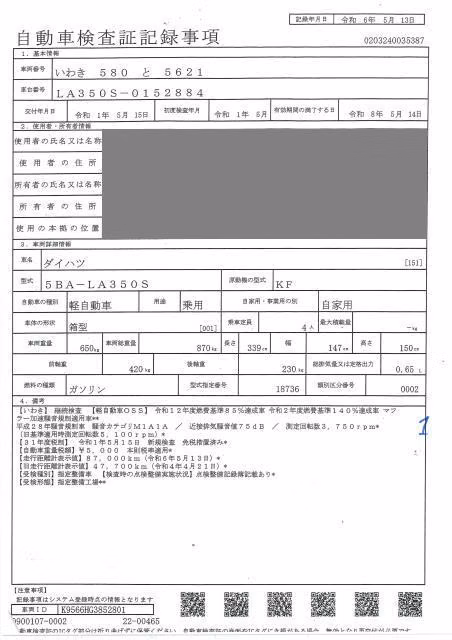 記録年月日 令和 6年 5月 13日
自動車検査証記録事項
0203240035387
1. 基本情報
車両番号 いわき 580 と 5621
車台番号 LA350S-0152884
交付年月日 令和 1年 5月 15日 初度検査年月 令和 1年 5月 有効期間の満了する日 令和 8年 5月 14日
2. 使用者・所有者情報
使用者の氏名又は名称
使用者の住所
所有者の氏名又は名称
所有者の住所
使用の本拠の位置
3. 車両詳細情報
車名 ダイハツ [151]
型式 5BA-LA350S 原動機の型式 KF
自動車の種別 軽自動車 用途 乗用 自家用・事業用の別 自家用
車体の形状 箱型 [001] 乗車定員 4人 最大積載量 -kg
車両重量 650kg 車両総重量 870kg 長さ 339cm 幅 147cm 高さ 150cm
前軸重 420kg 後軸重 230kg 総排気量又は定格出力 0.65L
燃料の種類 ガソリン 型式指定番号 18736 類別区分番号 0002
4. 備考
【いわき】 継続検査 【軽自動車OSS】 令和12年度燃費基準85%達成車 令和2年度燃費基準140%達成車 マフ
ラー加速騒音規制適用車**
平成28年騒音規制車 騒音カテゴリM1A1A / 近接排気騒音値75dB / 測定回転数3,750rpm*
(旧基準適用時測定回転数5,100rpm)*
【31年度税制】 令和1年5月15日 新規検査 免税措置済み*
【自動車重量税額】¥5,000 本則税率適用*
【走行距離計表示値】87,000km(令和6年5月13日)*
【旧走行距離計表示値】47,700km(令和4年4月21日)*
【受検種別】指定整備車 【検査時の点検整備実施状況】点検整備記録簿記載あり*
【受検形態】指定整備工場**
1
【注意事項】
記録事項はシステム登録時点の情報となります
車両ID K9566HG3852801
0900107-0002 22-00465